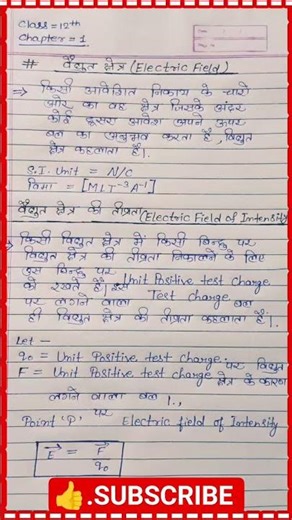 Class = 12th
Chapter = 1
# वैद्युत क्षेत्र (Electric Field)
⇒ किसी आवेशित निकाय के चारो
ओर का वह क्षेत्र जिसके अंदर
कोई दूसरा आवेश अपने ऊपर
बल का अनुभव करता है, विद्युत
क्षेत्र कहलाता है।
S.I. Unit = N/C
विमा = [MLT⁻³A⁻¹]
वैद्युत क्षेत्र की तीव्रता (Electric Field of Intensity)
⇒ किसी विद्युत क्षेत्र में किसी बिन्दु पर
विद्युत क्षेत्र की तीव्रता निकालने के लिए
उस बिन्दु पर Unit Positive test charge
को रखते हैं। इस Test charge
पर लगने वाला बल
ही विद्युत क्षेत्र की तीव्रता कहलाता है।
Let –
q₀ = Unit Positive test charge
F = Unit Positive test charge पर विद्युत
क्षेत्र के कारण
लगने वाला बल।.,
Point 'P' पर Electric field of Intensity
E⃗ = F⃗/q₀
👍.SUBSCRIBE